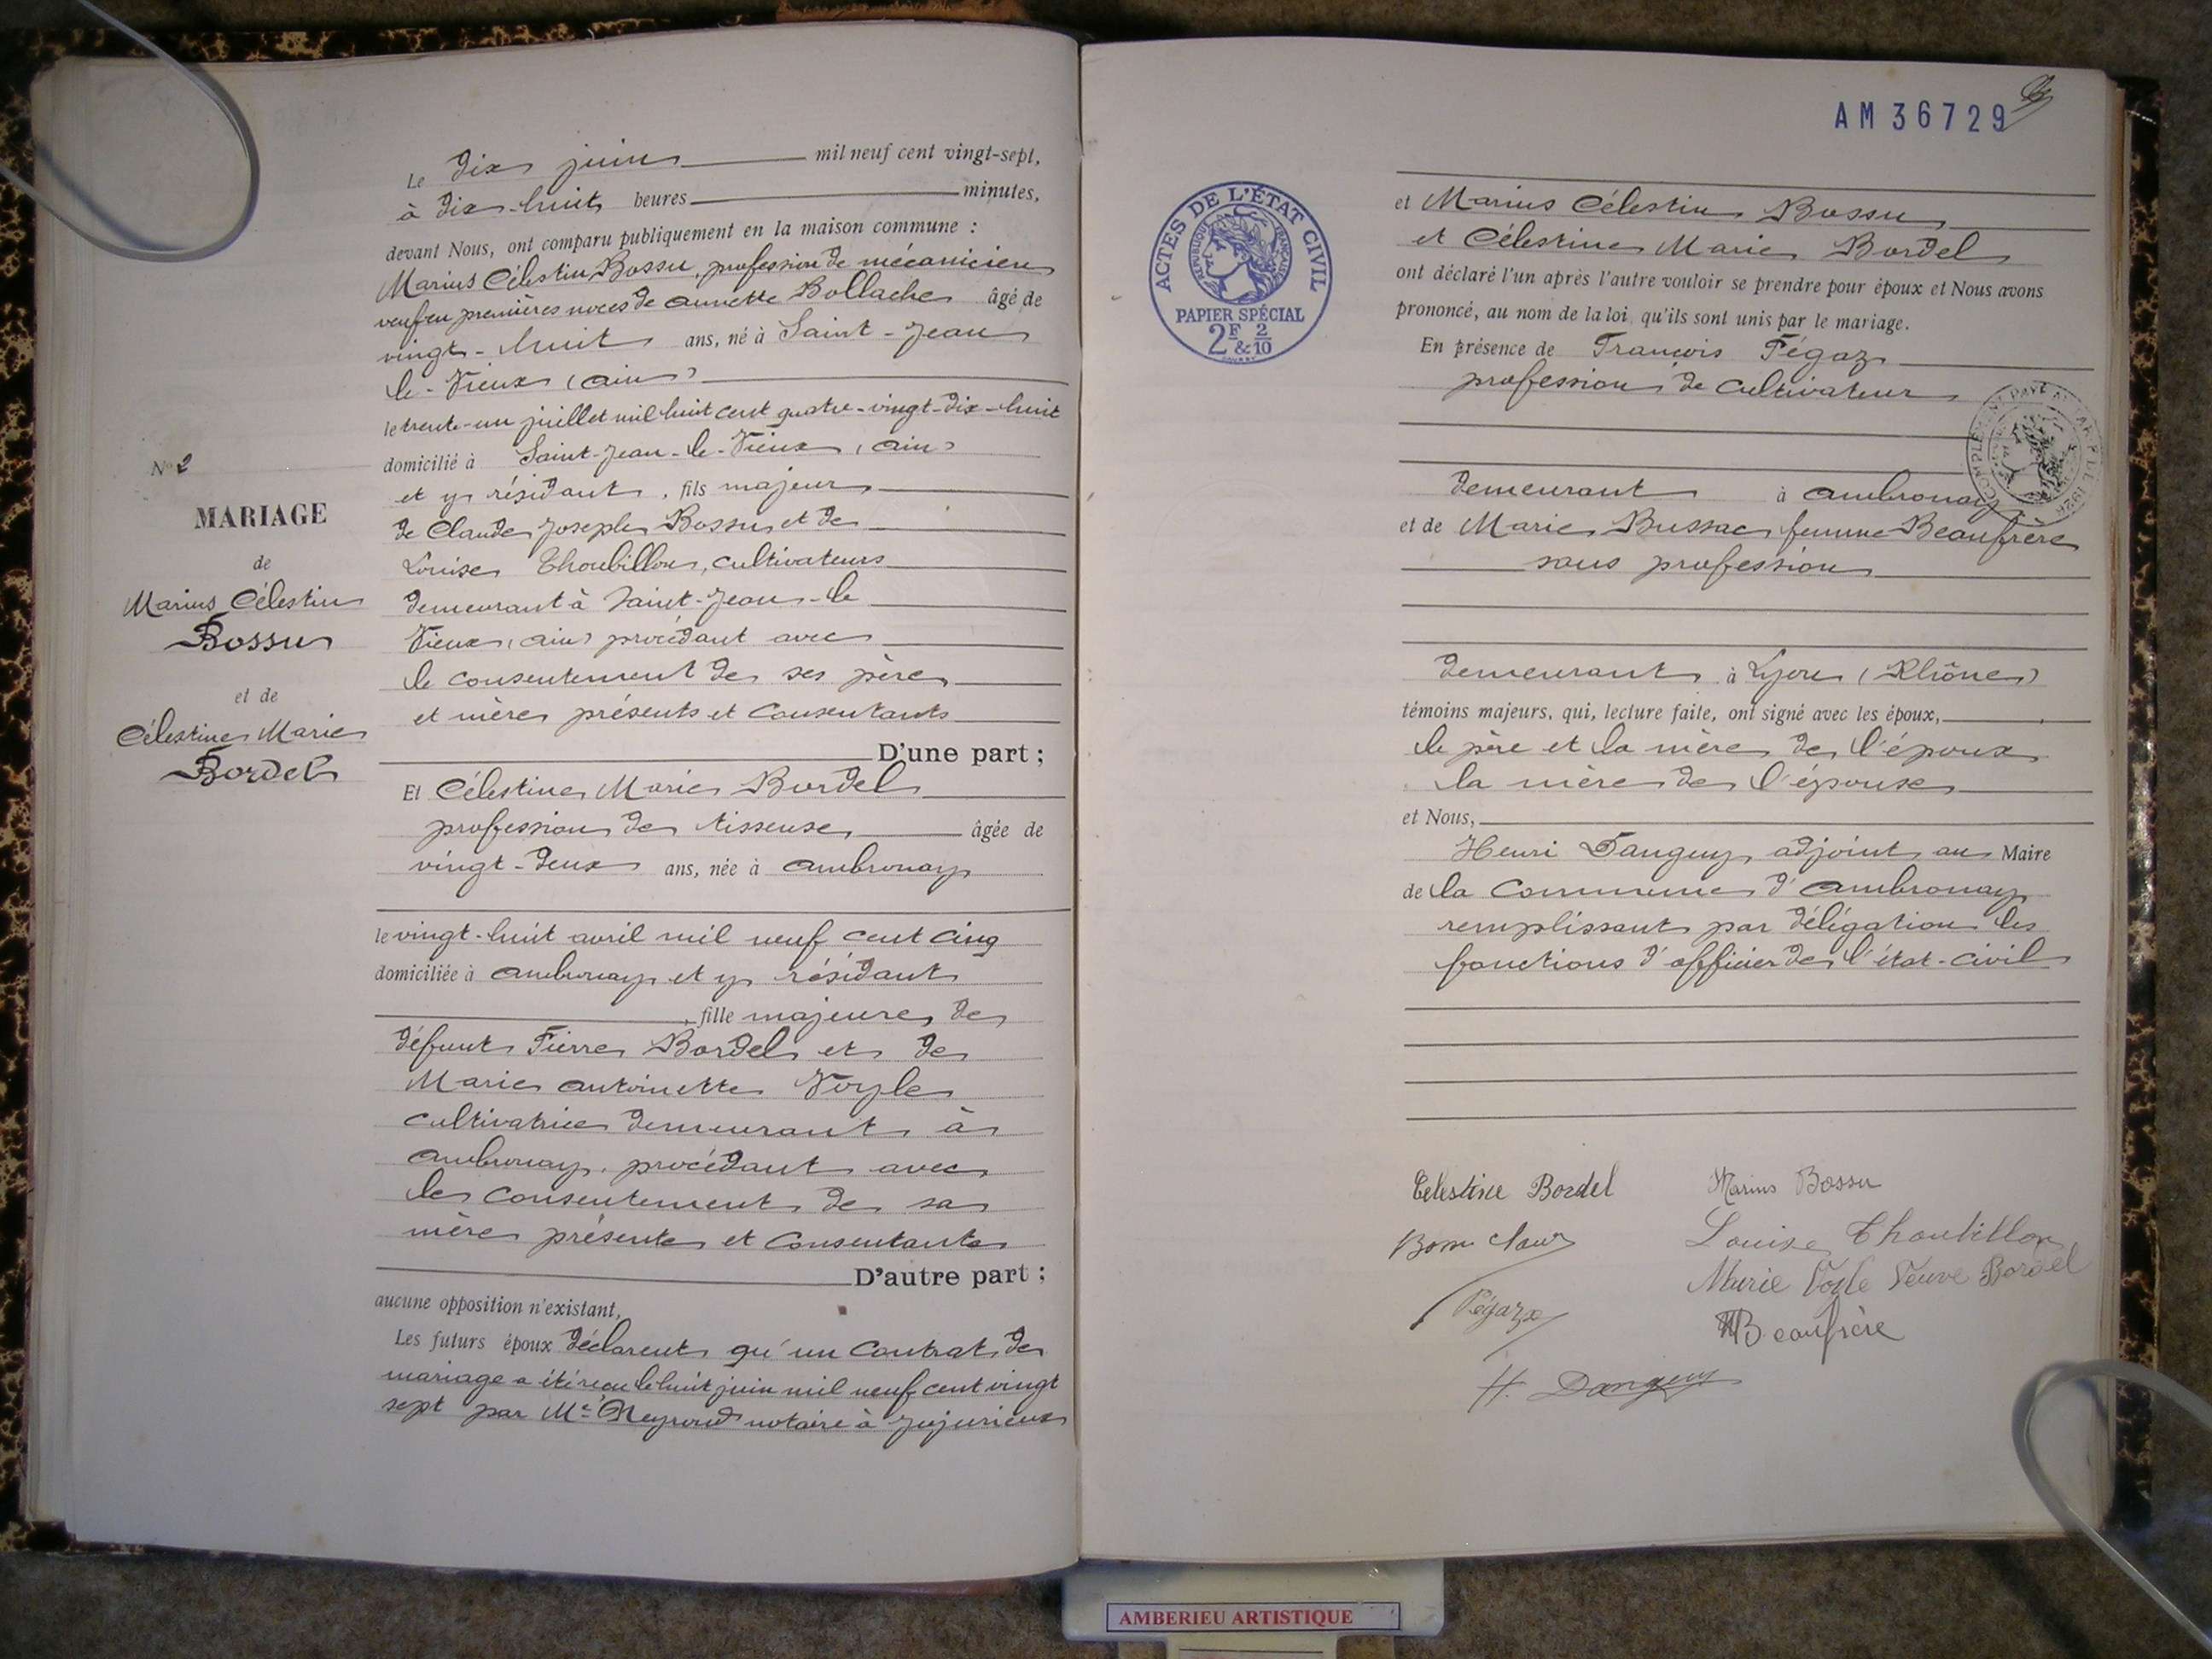 Le dix juin mil neuf cent vingt-sept,
à dix-huit heures minutes,
devant Nous, ont comparu publiquement en la maison commune :
Marius Célestin Bossu, profession de mécanicien
veuf en premières noces de Annette Bollache âgé de
vingt-huit ans, né à Saint-Jean
le-Vieux (Ain)
le trente-un juillet mil huit cent quatre-vingt-dix-huit
domicilié à Saint-Jean-le-Vieux (Ain)
et y résidant, fils majeur
de Claude Joseph Bossu et de
Louise Thoubillon, cultivateurs
demeurant à Saint-Jean-le
Vieux (Ain) procédant avec
le consentement de ses père
et mère présents et consentants
D'une part ;
Et Célestine Marie Bordel
profession de tisseuse, âgée de
vingt-deux ans, née à Ambronay
le vingt-huit avril mil neuf cent cinq
domiciliée à Ambronay et y résidant
, fille majeure, de
défunt Pierre Bordel et de
Marie Antoinette Voyle
cultivatrice demeurant à
Ambronay, procédant avec
le consentement de sa
mère présente et consentante
D'autre part ;
aucune opposition n'existant,
Les futurs époux déclarent qu'un contrat de
mariage a été reçu le huit juin mil neuf cent vingt
sept par Me Neyroud notaire à Jujurieux
No 2
MARIAGE
de
Marius Célestin
Bossu
et de
Célestine Marie
Bordel
AM 36729
ACTES DE L'ÉTAT CIVIL
RÉPUBLIQUE FRANÇAISE
PAPIER SPÉCIAL
2F & 2/10
et Marius Célestin Bossu
et Célestine Marie Bordel
ont déclaré l'un après l'autre vouloir se prendre pour époux et Nous avons
prononcé, au nom de la loi, qu'ils sont unis par le mariage.
En présence de François Pégaz
profession de cultivateur
demeurant à Ambronay
et de Marie Bussac femme Beaufrère
sans profession
demeurant à Lyon (Rhône)
témoins majeurs, qui, lecture faite, ont signé avec les époux,
le père et la mère de l'époux
la mère de l'épouse
et Nous,
Henri Tanguy adjoint au Maire
de la Commune d'Ambronay
remplissant par délégation les
fonctions d'officier de l'état-civil
Célestine Bordel Marius Bossu
Louise Thoubillon
Marie Voyle Veuve Bordel
Pégaz
Beaufrère
AMBERIEU ARTISTIQUE